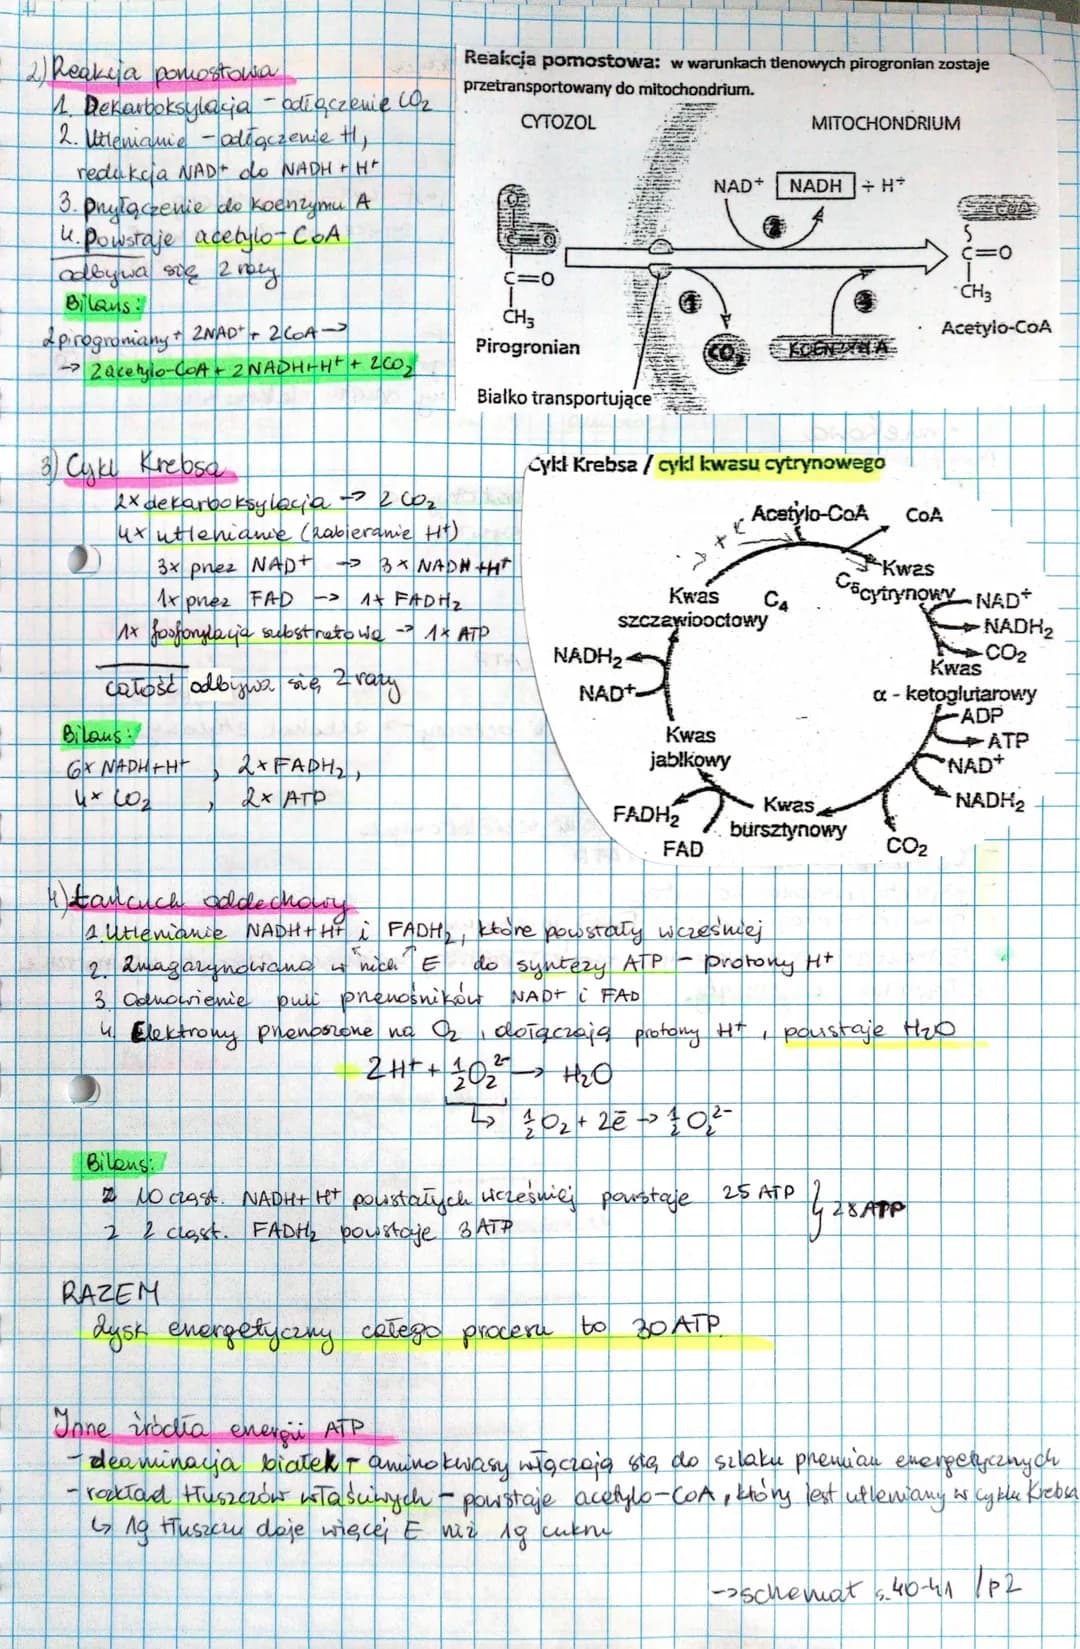 2) Reakcja pomostowa
1. Dekarboksylacja - odłączenie CO2
2. Utlenianie - odłączenie H,
redukcja NAD+ do NADH + H+
3. Przyłączenie do koenzymu A
4. Powstaje acetylo-CoA
odbywa się 2 razy
Bilans:
2 pirogroniany + 2NAD+ + 2CoA →
→ 2acetylo-CoA + 2NADH+H+ + 2CO2
Reakcja pomostowa: w warunkach tlenowych pirogronian zostaje
przetransportowany do mitochondrium.
CYTOZOL
MITOCHONDRIUM
NAD+ NADH + H+
2
C=O
C=O
CH3
Pirogronian
1
CO2
3
KOENZYM A
CoA
S
C=O
CH3
Acetylo-CoA
Białko transportujące
3) Cykl Krebsa
2x dekarboksylacja → 2 CO2
4x utlenianie (zabieranie H+)
3x przez NAD+ → 3x NADH+H+
1x przez FAD → 1x FADH2
1x fosforylacja substratowa → 1x ATP
całość odbywa się 2 razy
Bilans:
6x NADH+H+, 2x FADH2,
4x CO2, 2x ATP
Cykl Krebsa / cykl kwasu cytrynowego
Acetylo-CoA
CoA
Kwas
cytrynowy
NAD+
NADH2
CO2
Kwas
α - ketoglutarowy
ADP
ATP
NAD+
NADH2
CO2
Kwas
bursztynowy
FAD
FADH2
Kwas
jabłkowy
NAD+
NADH2
Kwas
szczawiooctowy
C4
4) Łańcuch oddechowy
1. Utlenianie NADH+H+ i FADH2, które powstały wcześniej
2. Zmagazynowana w nich E do syntezy ATP - protony H+
3. Odnowienie puli przenośników NAD+ i FAD
4. Elektrony przenoszone na O2, dołączają protony H+, powstaje H2O
2H+ + ½O2²⁻ → H2O
↳ ½O2 + 2ē → ½O2²⁻
Bilans:
Z 10 cząst. NADH+H+ powstałych wcześniej powstaje 25 ATP
Z 2 cząst. FADH2 powstaje 3 ATP
} 28 ATP
RAZEM
Zysk energetyczny całego procesu to 30 ATP.
Inne źródła energii ATP
- deaminacja białek - aminokwasy włączają się do szlaku przemian energetycznych
- rozkład tłuszczów właściwych - powstaje acetylo-CoA, który jest utleniany w cyklu Krebsa
↳ 1g tłuszczu daje więcej E niż 1g cukru
→ schemat s.40-41 /p2